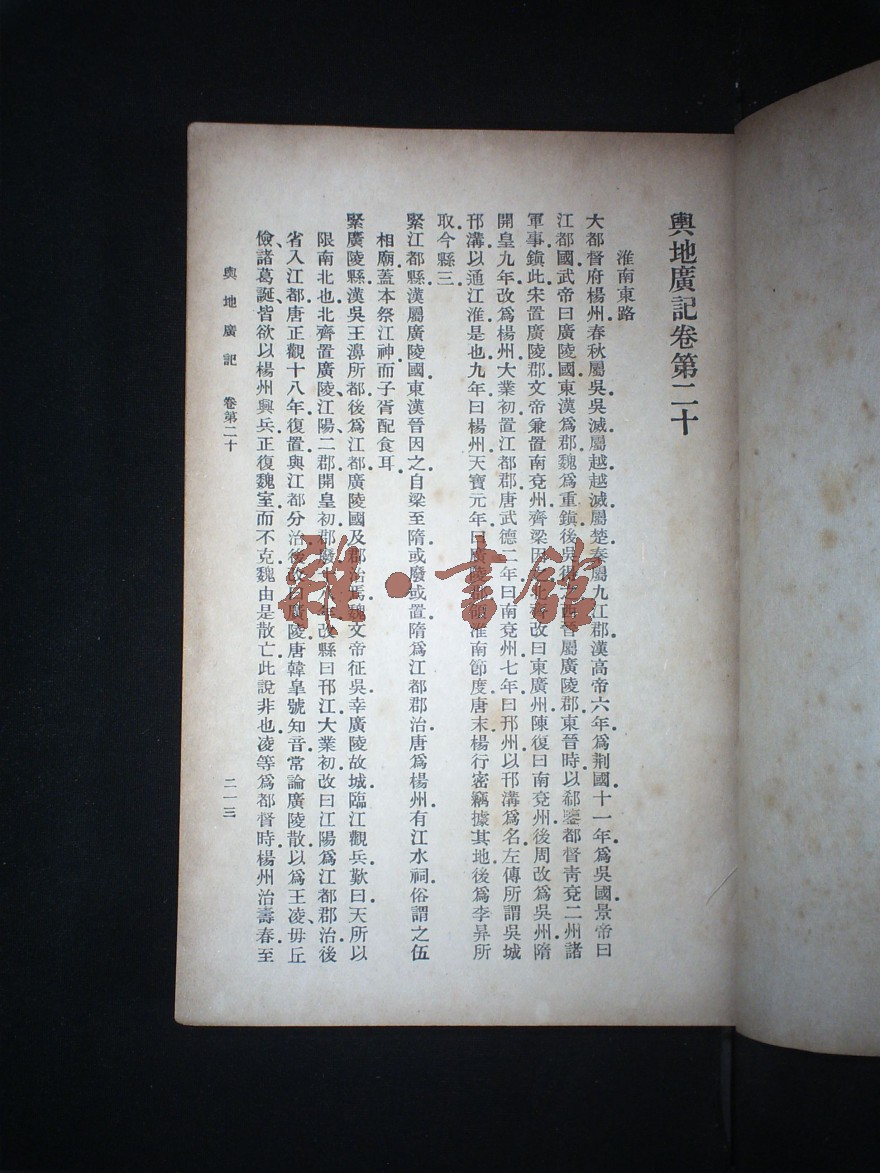 輿地廣記卷第二十
淮南東路
大都督府楊州.春秋屬吳.吳滅屬越.越滅屬楚.秦屬九江郡.漢高帝六年.爲荆國.十一年.爲吳國.景帝曰
江都國.武帝曰廣陵國.東漢爲郡.魏爲重鎭.後吳得之.西晉屬廣陵郡.東晉時.以郗鑒都督靑兗二州諸
軍事.鎭此.宋置廣陵郡.文帝兼置南兗州.齊梁因之.北齊改曰東廣州.陳復曰南兗州.後周改爲吳州.隋
開皇九年.改爲楊州.大業初.置江都郡.唐武德二年.曰南兗州.七年.曰邗州.以邗溝爲名.左傳所謂吳城
邗溝以通江淮是也.九年.曰楊州.天寶元年.曰廣陵郡.領淮南節度.唐末.楊行密竊據其地.後爲李昪所
取.今縣三.
緊江都縣.漢屬廣陵國.東漢晉因之.自梁至隋.或廢或置.隋爲江都郡治.唐爲楊州.有江水祠.俗謂之伍
相廟.蓋本祭江神.而子胥配食耳.
緊廣陵縣.漢吳王濞所都.後爲江都廣陵國及郡治焉.魏文帝征吳.幸廣陵故城.臨江觀兵.歎曰.天所以
限南北也.北齊置廣陵、江陽二郡.開皇初.郡廢.年.改縣曰邗江.大業初.改曰江陽.爲江都郡治.後
省入江都.唐正觀十八年.復置.與江都分治.後改曰廣陵.唐韓皐號知音.常論廣陵散.以爲王凌、毋丘
儉、諸葛誕.皆欲以楊州興兵.正復魏室而不克.魏由是散亡.此說非也.凌等爲都督時.楊州治壽春.至
輿地廣記 卷第二十 二一三
雜·書館